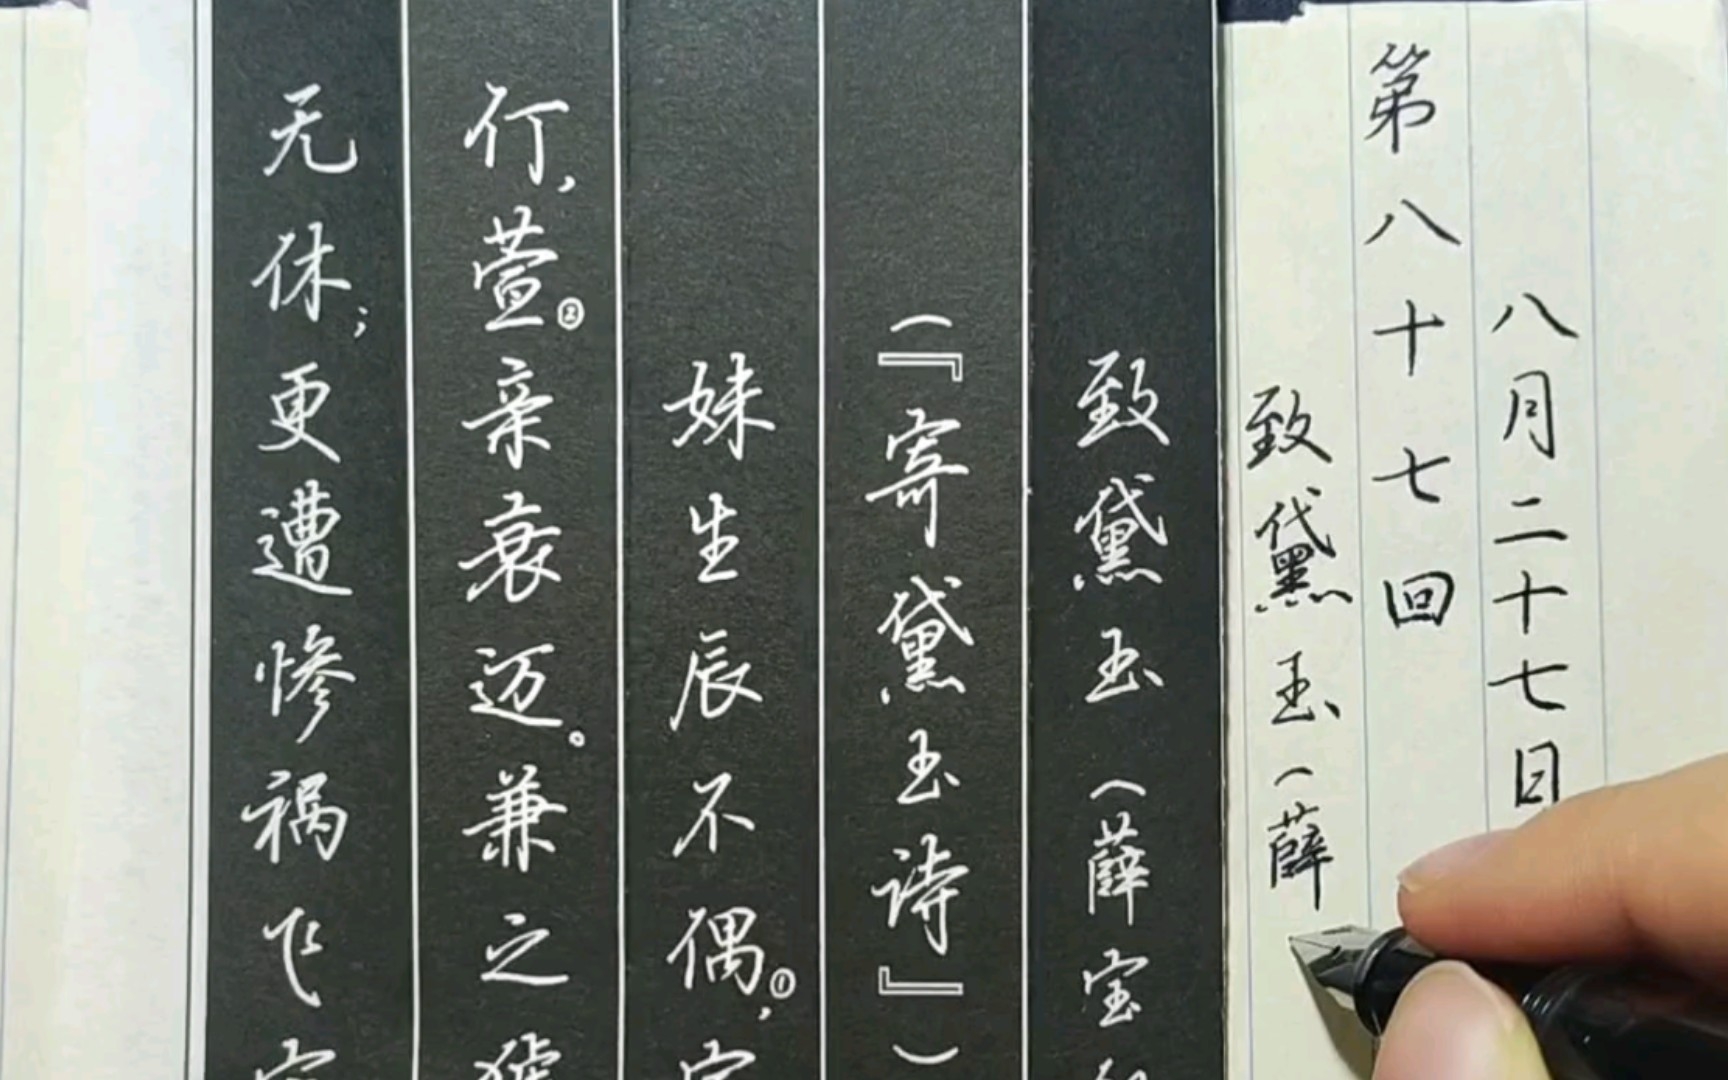 八月二十七日
第八十七回
致黛玉（薛
致黛玉（薛宝
（『寄黛玉诗』）
妹生辰不偶①，家
仃，萱②亲衰迈。兼之猇
无休；更遭惨祸飞